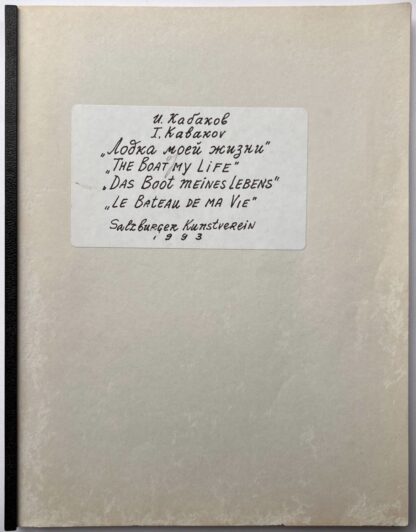 И. Кабаков
I. Kabakov
„Лодка моей жизни"
„The Boat of my Life"
„Das Boot meines Lebens"
„Le Bateau de ma Vie"
Salzburger Kunstverein
1993